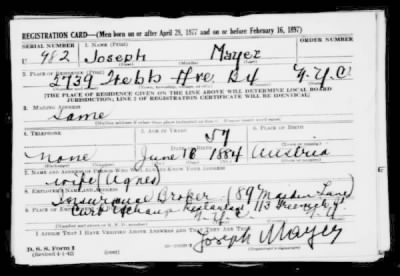 REGISTRATION CARD—(Men born on or after April 28, 1877 and on or before February 16, 1897)
SERIAL NUMBER 1. NAME (Print) ORDER NUMBER
U 982 Joseph Mayer
(First) (Middle) (Last)
2. PLACE OF RESIDENCE (Print)
2739 Webb Ave Bx N.Y.C
(Number and street) (Town, township, village, or city) (County) (State)
[THE PLACE OF RESIDENCE GIVEN ON THE LINE ABOVE WILL DETERMINE LOCAL BOARD
JURISDICTION; LINE 2 OF REGISTRATION CERTIFICATE WILL BE IDENTICAL]
3. MAILING ADDRESS
Same
4. TELEPHONE 5. AGE IN YEARS 6. PLACE OF BIRTH
57
DATE OF BIRTH
none June 16 1884 Austria
7. NAME AND ADDRESS OF PERSON WHO WILL ALWAYS KNOW YOUR ADDRESS
Wife (Agnes)
8. EMPLOYER'S NAME AND ADDRESS
Insurance Broker (89 Maiden Lane)
Curb Exchange Restaurant 113 Greenwich St
N.Y.C.
I AFFIRM THAT I HAVE VERIFIED ABOVE ANSWERS AND THAT THEY ARE TRUE.
D. S. S. Form 1
(Revised 4-1-42)
Joseph Mayer
(Registrant's signature)